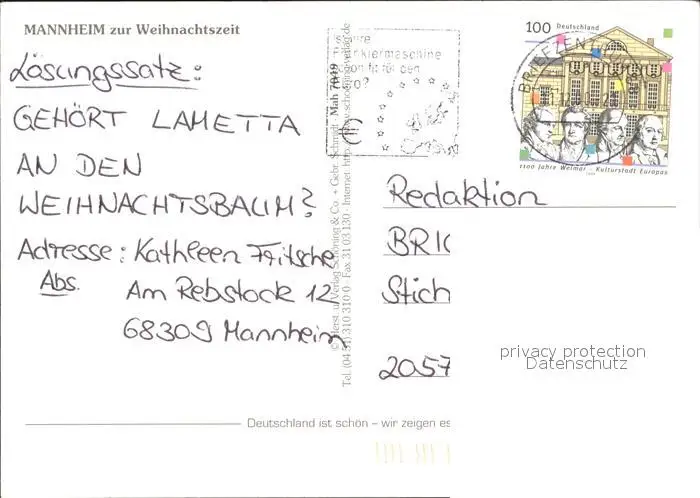 MANNHEIM zur Weihnachtszeit
Lösungssatz:
GEHÖRT LAMETTA
AN DEN
WEIHNACHTSBAUM?
Adresse: Kathleen Fritsche
Abs.
Am Rebstock 12
68309 Mannheim
Tel. (04 51) 310 310 0 · Fax 31 03 130 · Internet
Mah 7049
100 Deutschland
BRIEFZENTRUM
1100 Jahre Weimar - Kulturstadt Europas
Redaktion
BRIG
Stich
2057
privacy protection
Datenschutz
Deutschland ist schön – wir zeigen es